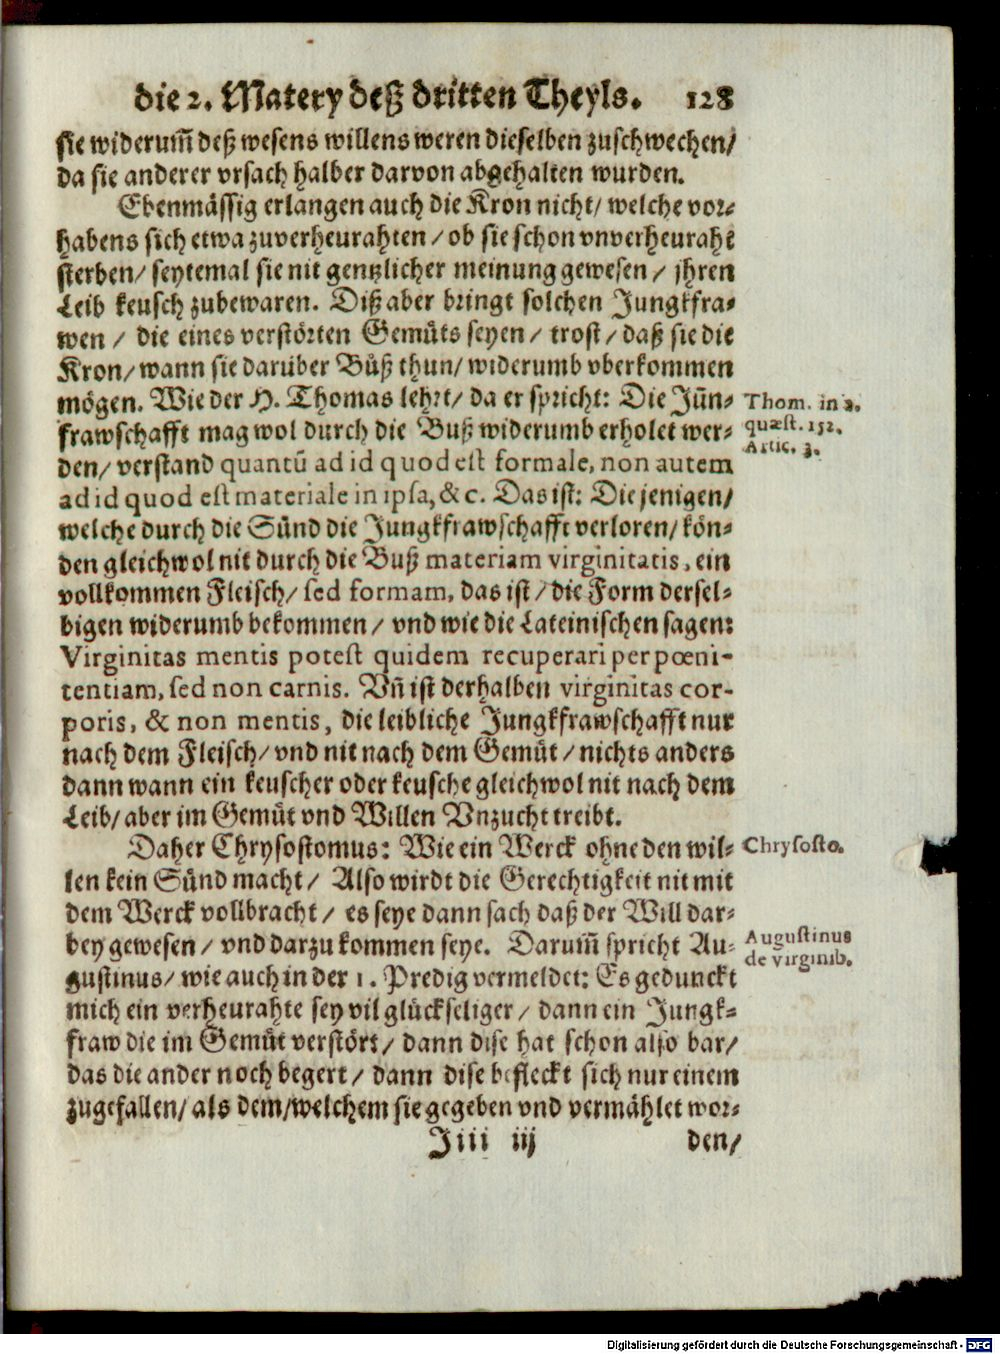 die 2. Matery deß dritten Theyls. 128
sie widerum̃ deß wesens willens weren dieselben zuschwechen/
da sie anderer vrsach halber darvon abgehalten wurden.
Ebenmässig erlangen auch die Kron nicht/ welche vor-
habens sich etwa zuverheurahten/ ob sie schon vnverheuraht
sterben/ seytemal sie nit gentzlicher meinung gewesen/ jhren
Leib keusch zubewaren. Diß aber bringt solchen Jungkfra-
wen/ die eines verstörten Gemüts seyen/ trost/ daß sie die
Kron/ wann sie darüber Büß thun/ widerumb vberkommen
mögen. Wie der H. Thomas lehrt/ da er spricht: Die Jũn-
frawschafft mag wol durch die Buß widerumb erholet wer-
Thom. in 2.
quæst. 152.
Artic. 3.
den/ verstand quantũ ad id quod est formale, non autem
ad id quod est materiale in ipsa, &c. Das ist: Die jenigen/
welche durch die Sünd die Jungkfrawschafft verloren/ kön-
den gleichwol nit durch die Buß materiam virginitatis, ein
vollkommen Fleisch/ sed formam, das ist/ die Form dersel-
bigen widerumb bekommen/ vnd wie die Lateinischen sagen:
Virginitas mentis potest quidem recuperari per pœni-
tentiam, sed non carnis. Vñ ist derhalben virginitas cor-
poris, & non mentis, die leibliche Jungkfrawschafft nur
nach dem Fleisch/ vnd nit nach dem Gemüt/ nichts anders
dann wann ein keuscher oder keusche gleichwol nit nach dem
Leib/ aber im Gemüt vnd Willen Vnzucht treibt.
Daher Chrysostomus: Wie ein Werck ohne den wil-
Chrysosto.
len kein Sünd macht/ Also wirdt die Gerechtigkeit nit mit
dem Werck vollbracht/ es seye dann sach daß der Will dar-
bey gewesen/ vnd darzu kommen seye. Darum̃ spricht Au-
Augustinus
de virginib.
gustinus/ wie auch in der 1. Predig vermeldet: Es gedunckt
mich ein verheurahte sey vil glückseliger/ dann ein Jungk-
fraw die im Gemüt verstört/ dann dise hat schon also bar/
das die ander noch begert/ dann dise befleckt sich nur einem
zugefallen/ als dem/ welchem sie gegeben vnd vermählet wor-
Jiii iij den/
Digitalisierung gefördert durch die Deutsche Forschungsgemeinschaft - DFG